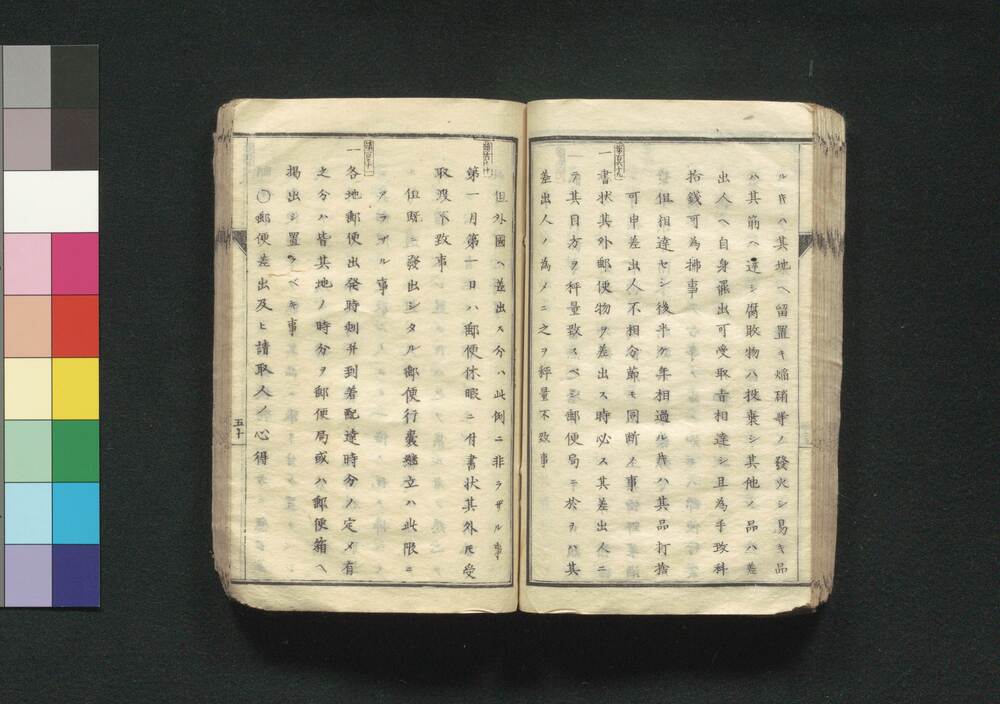 ル片ハ其地ヘ留置キ焔硝等ノ發火シ易キ品
ハ其筋ヘ達シ腐敗物ハ投棄シ其他ノ品ハ差
出人ヘ自身罷出可受取旨相達シ且為手数科
拾銭可為拂事
但相達セシ後半ケ年相過ル片ハ其品打捨
可申差出人不相分節モ同断ノ事
第百九
一書状其外郵便物ヲ差出ス時必ス其差出人ニ
テ其目方ヲ秤量致スベシ郵便局ニ於テハ其
差出人ノ為メニ之ヲ秤量不致事
但外國ヘ差出ス分ハ此例ニ非ラザル事
第百十
第一月第一日ハ郵便休暇ニ付書状其外凡受
取渡不致事
但既ニ發出シタル郵便行嚢継立ハ此限ニ
アラザル事
第百十一
一各地郵便出發時刻并到着配達時分ノ定メ有
之分ハ皆其地ノ時分ヲ郵便局或ハ郵便箱ヘ
掲出シ置クベキ事
○郵便差出及ヒ請取人ノ心得
五十